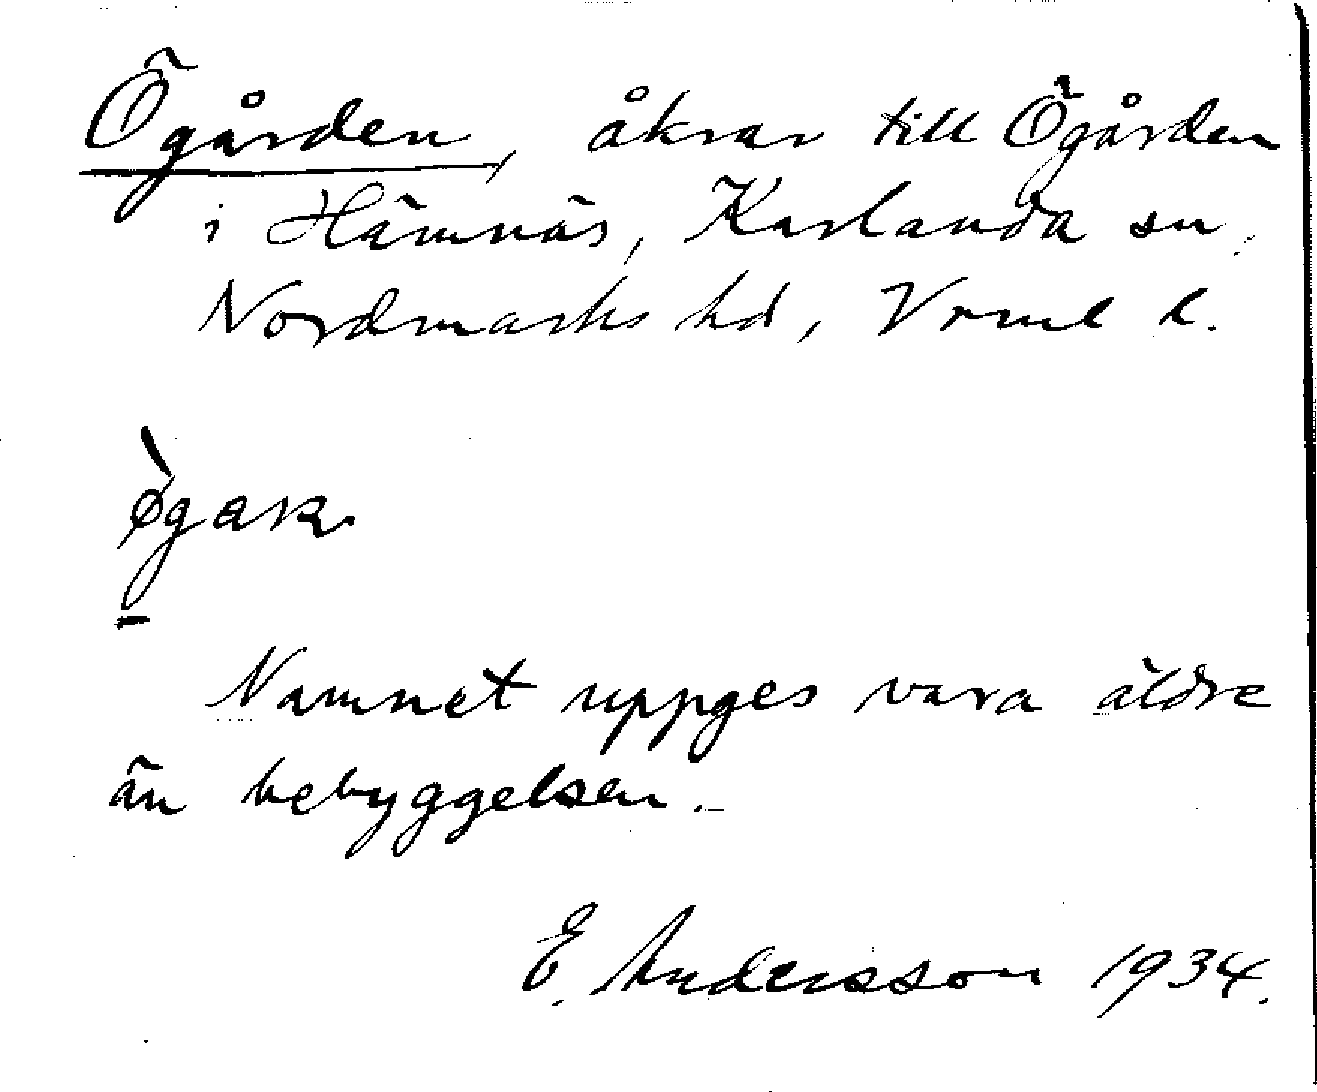 Ögården, åkrar till Ögården
i Hämnäs, Karlanda sn,
Nordmarks hd, Vrml l.
ògaʀ
Namnet uppges vara äldre
än bebyggelsen.
E. Andersson 1934.